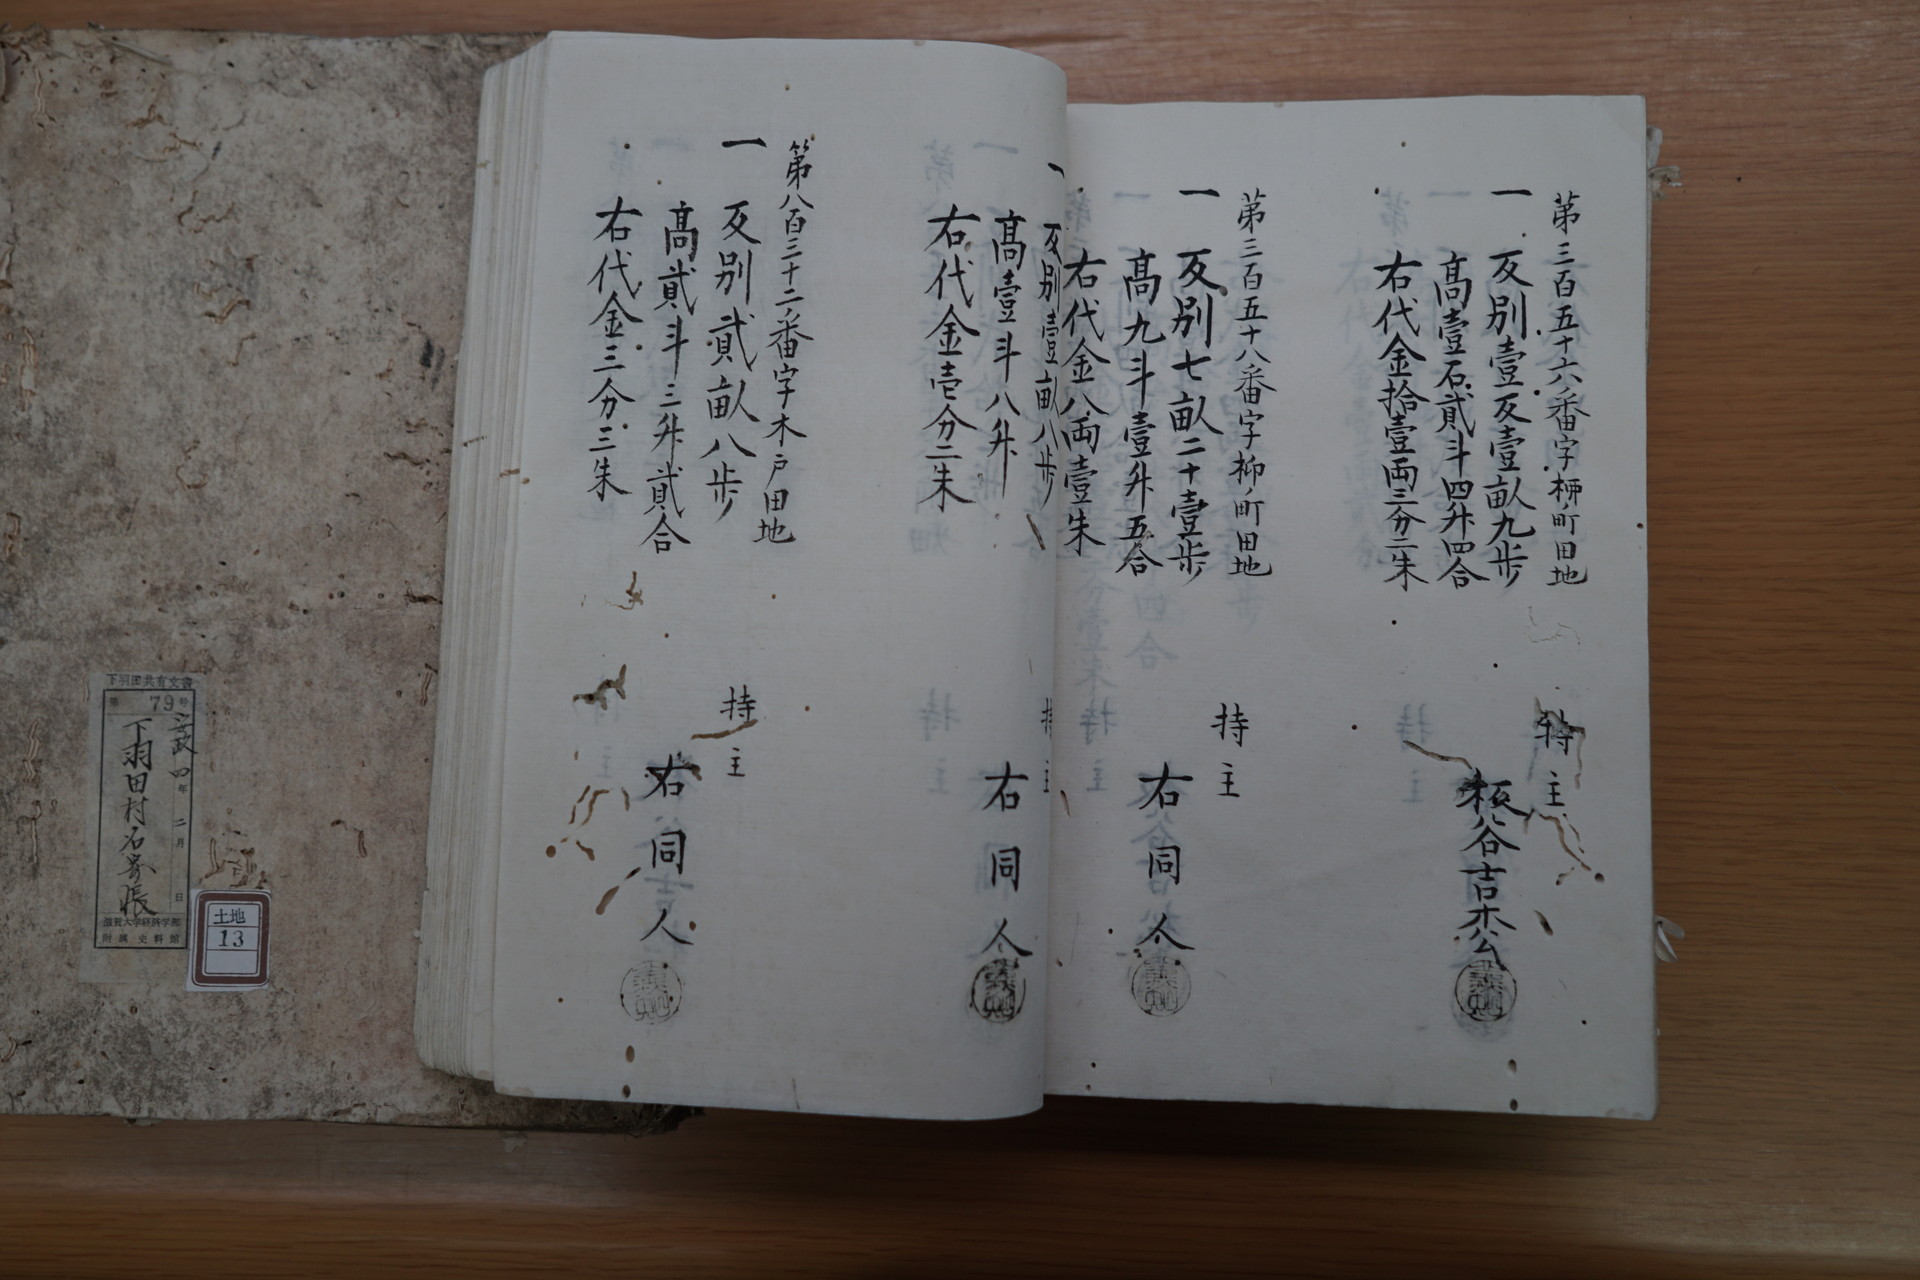 第三百五十六番字柳ノ町田地
一 反別壹反壹畝九歩
高壹石貳斗四升四合
右代金拾壹両三分二朱
持主
板谷吉松
第三百五十八番字柳ノ町田地
一 反別七畝二十壹歩
高九斗壹升五合
右代金八両壹朱
持主
右同人
一 反別壹畝八歩
高壹斗八升
右代金壱分二朱
持主
右同人
第八百三十二番字木戸田地
一 反別貳畝八歩
高貳斗三升貳合
右代金三分三朱
持主
右同人
下羽田共有文書
第 79号
安政四年 二月 日
下羽田村名寄帳
滋賀大学経済学部
附属史料館
土地
13